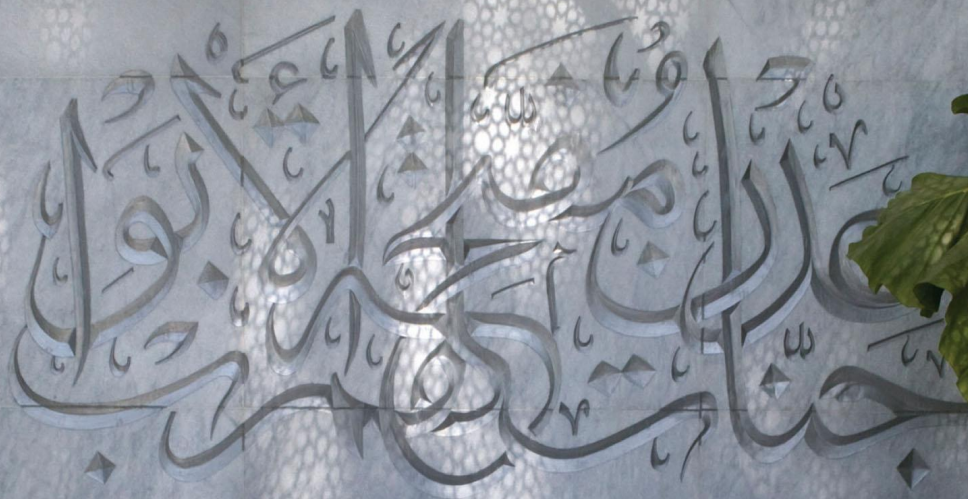 جَنَّاتِ عَدْنٍ مُفَتَّحَةً لَهُمُ الْأَبْوَابُ